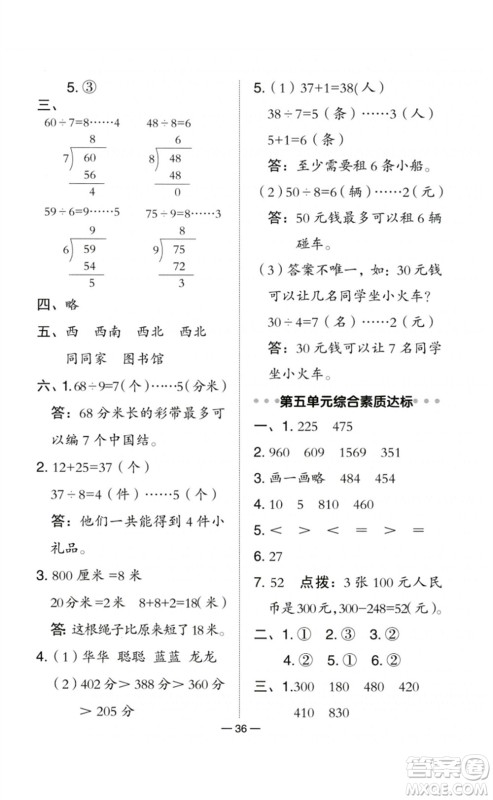 5. ③
三、
60÷7=8……4 48÷8=6
8
7 60
56
4
6
8 48
48
0
59÷6=9……5 75÷9=8……3
9
6 59
54
5
8
9 75
72
3
四、略
五、西 西南 西北 西北
同同家 图书馆
六、1.68÷9=7(个)……5(分米)
答:68 分米长的彩带最多可以编 7 个中国结。
2. 12+25=37(个)
37÷8=4(件)……5(个)
答:他们一共能得到 4 件小
礼品。
3. 800 厘米=8 米
20分米=2米 8+8+2=18(米)
答:这根绳子比原来短了18米。
4.(1)华华 聪聪 蓝蓝 龙龙
(2)402 分>388 分>386 分
>205 分
5.(1)37+1=38(人)
38÷7=5(条)……3(人)
5+1=6(条)
答:至少需要租 6 条小船。
(2)50÷8=6(辆)……2(元)
答:50 元钱最多可以租 6 辆
碰车。
(3)答案不唯一,如:30 元钱
可以让几名同学坐小火车?
30÷4=7(名)……2(元)
答:30 元钱可以让 7 名同学
坐小火车。
第五单元综合素质达标
一、1. 225 475
2. 960 609 1569 351
3. 画一画略 484 454
4. 10 5 810 460
5. < > > > =
6. 27
7. 52 点拨:3 张 100 元人民
币是300元,300-248=52(元)
二、1. ① 2. ① 3. ②
4. ② 5. ①
三、1.300 180 480 420
410 830 510 820
36
答案圈
MXQE.COM